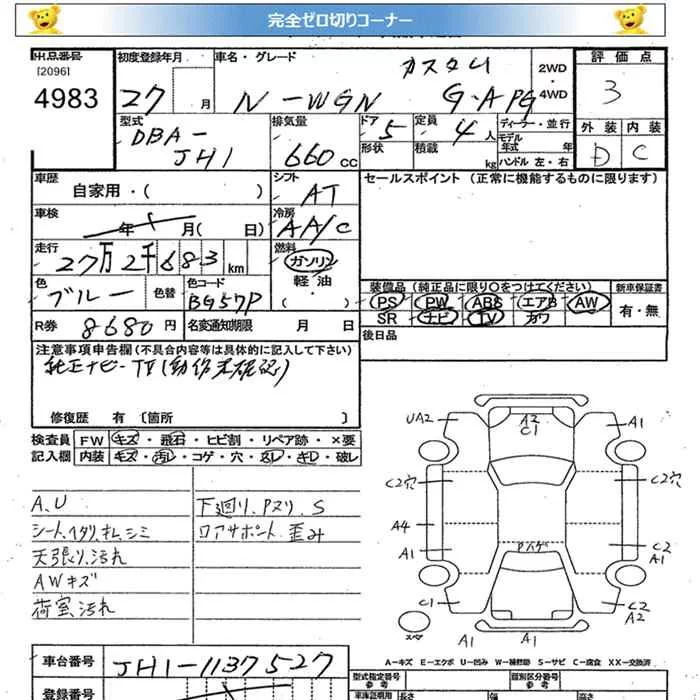 完全ゼロ切りコーナー
出品番号 初度登録年月 車名・グレード カスタム 2WD 評価点
[2096]
4983 27 月 N-WGN G・A PG ・4WD 3
型式 排気量 ドア 定員 ディーラー・並行 外装 内装
DBA- 5 4人 モデル年式 年 D C
JH1 660cc 形状 積載 kg ハンドル 左・右
車歴 シフト セールスポイント (正常に機能するものに限ります)
自家用・( ) AT
車検 冷房
年 月( 日) AA/C
走行 燃料
27万2千683km ガソリン
色 色替 色コード 軽油 装備品(純正品に限り○をつけてください) 新車保証書
ブルー BG57P ・( ) PS PW ABS エアB AW 有・無
R券 8680円 名変通知期限 月 日 SR ナビ TV カワ
後日品
注意事項申告欄(不具合内容等は具体的に記入して下さい)
純正ナビ-TV(動作未確認)
修復歴 有 〔箇所 〕
検査員 FW キズ・飛石・ヒビ割・リペア跡・×要
記入欄 内装 キズ・汚レ・コゲ・穴・スレ・キレ・破レ
A.U 下廻り.Pヌリ.S
シート.ヘタリ.キレ.シミ ロアサポート.歪み
天張り.汚れ
AWキズ
荷室.汚れ
UA2 A2 A1
C1
C2穴 C2穴
A4
Pスゲ
A1 C2
A1
C1 C2
A2
スペア A1 A1
A-キズ E-エクボ U-凹み W-補修跡 S-サビ C-腐食 XX-交換済
車台番号 JH1-1137527 型式指定番号 類別区分番号
参考 参考
登録番号 車庫証明用 長さ 幅 高さ